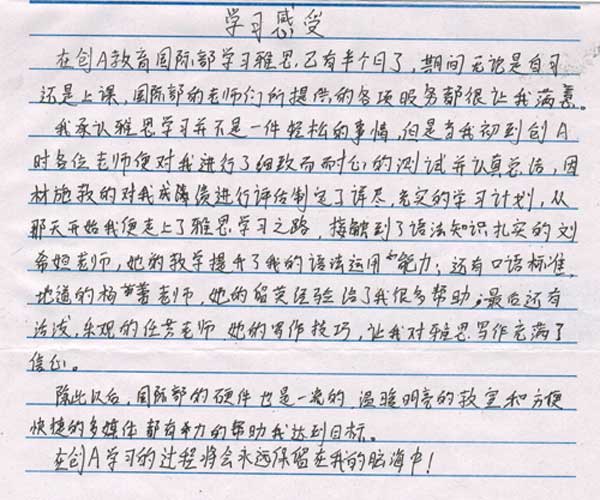 学习感受
在创A教育国际部学习雅思已有半个月了，期间无论是自习
还是上课，国际部的老师们所提供的各项服务都很让我满意。
我承认雅思学习并不是一件轻松的事情，但是当我初到创A
时各位老师便对我进行了细致而耐心的测试并认真总结，因
材施教的对我成绩进行评估制定了详尽充实的学习计划，从
那天开始我便走上了雅思学习之路，接触到了语法知识扎实的刘
希妲老师，她的教学提升了我的语法运用能力；还有口语标准，
地道的杨蕾老师，她的留英经验给了我很多帮助；最后还有
活泼，乐观的任芸老师，她的写作技巧，让我对雅思写作充满了
信心。
除此以后，国际部的硬件也是一流的，温暖明亮的教室和方便
快捷的多媒体都有力的帮助我达到目标。
在创A学习的过程将会永远保留在我的脑海中！